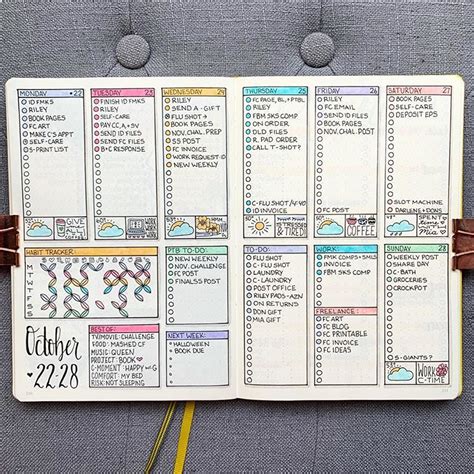 MONDAY •22
ID FMKS
RILEY
BOOK PAGES
FC ART
MAKE C'S APPT
SELF-CARE
SS-PRINT LIST
GIVE
ALL
TUESDAY 23
FINISH ID FMKS
RILEY
SELF-CARE
PAY CC, A+SV
SEND ID FILES
SEND FC FILES
B+C RESPONSE
WORK
WORK
WORK
WEDNESDAY 24
RILEY
SEND A-GIFT
FLU SHOT →
BOOK PAGES
NOV. CHAL. PREP
SS POST
FC INVOICE
WORK REQUEST ID
NEW WEEKLY
THURSDAY 25
FC PAGE, BL, +PTBL
RILEY
FBM SKS COMP
ON ORDER
OLD FILES
R. PAD ORDER
CALL T-SHOT?
C-FLU SHOT /4:40
ID INVOICE
& TIRED!
FRIDAY 26
RILEY
FC EMAIL
SEND ID FILES
BOOK PAGES
NOV. CHAL POST
COFFEE
SATURDAY 27
BOOK PAGES
SELF-CARE
DEPOSIT EPS
SLOT MACHINE
DARLENE + DONS
SPENT
TIME
WITH
Mia
HABIT TRACKER:
M
T
W
T
F
S
S
October
•22•28
BEST OF:
TV/MOVIE: CHALLENGE
FOOD: MASHED CF
MUSIC: QUEEN
PROJECT: BOOK
C-MOMENT: HAPPY w/G
COMFORT: MY BED
RISK: NOT SLEEPING
PTB TO-DO:
NEW WEEKLY
NOV. CHALLENGE
FC POST
FINAL SS POST
NEXT WEEK:
HALLOWEEN
BOOK DUE
TO-DO:
FLU SHOT
C-FLU SHOT
LAUNDRY
C-LAUNDRY
POST OFFICE
RILEY PADS-AZN
ON RETURNS
DON GIFT
MIA GIFT
WORK:
FMK COMPS + SMLS
INVOICE
FBM SKS COMP
FREELANCE:
FC ART
FC BLOG
FC PRINTABLE
FC INVOICE
FC IDEAS
SUNDAY 28
WEEKLY POST
SHARE DAY
C-BATH
GROCERIES
CROCKPOT
S-GIANTS?
WORK
C-TIME